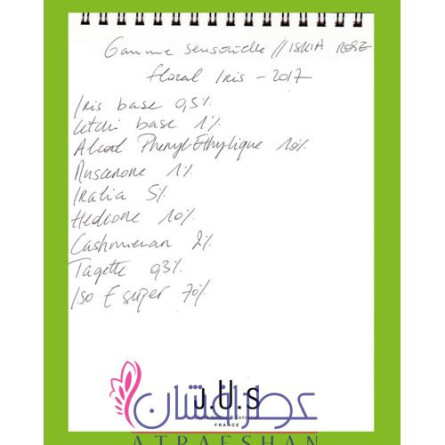 Gamme sensorielle // ISKIA ROSE
floral Iris - 2017
Iris base 0,5%
Litchi base 1%
Alcool Phenyl Ethylique 10%
Muscenone 1%
Iralia 5%
Hedione 10%
Cashmeran 2%
Tagette 0,3%
Iso E super 70%
J.U.S
FRANCE
عطرافشان
ATRAFSHAN